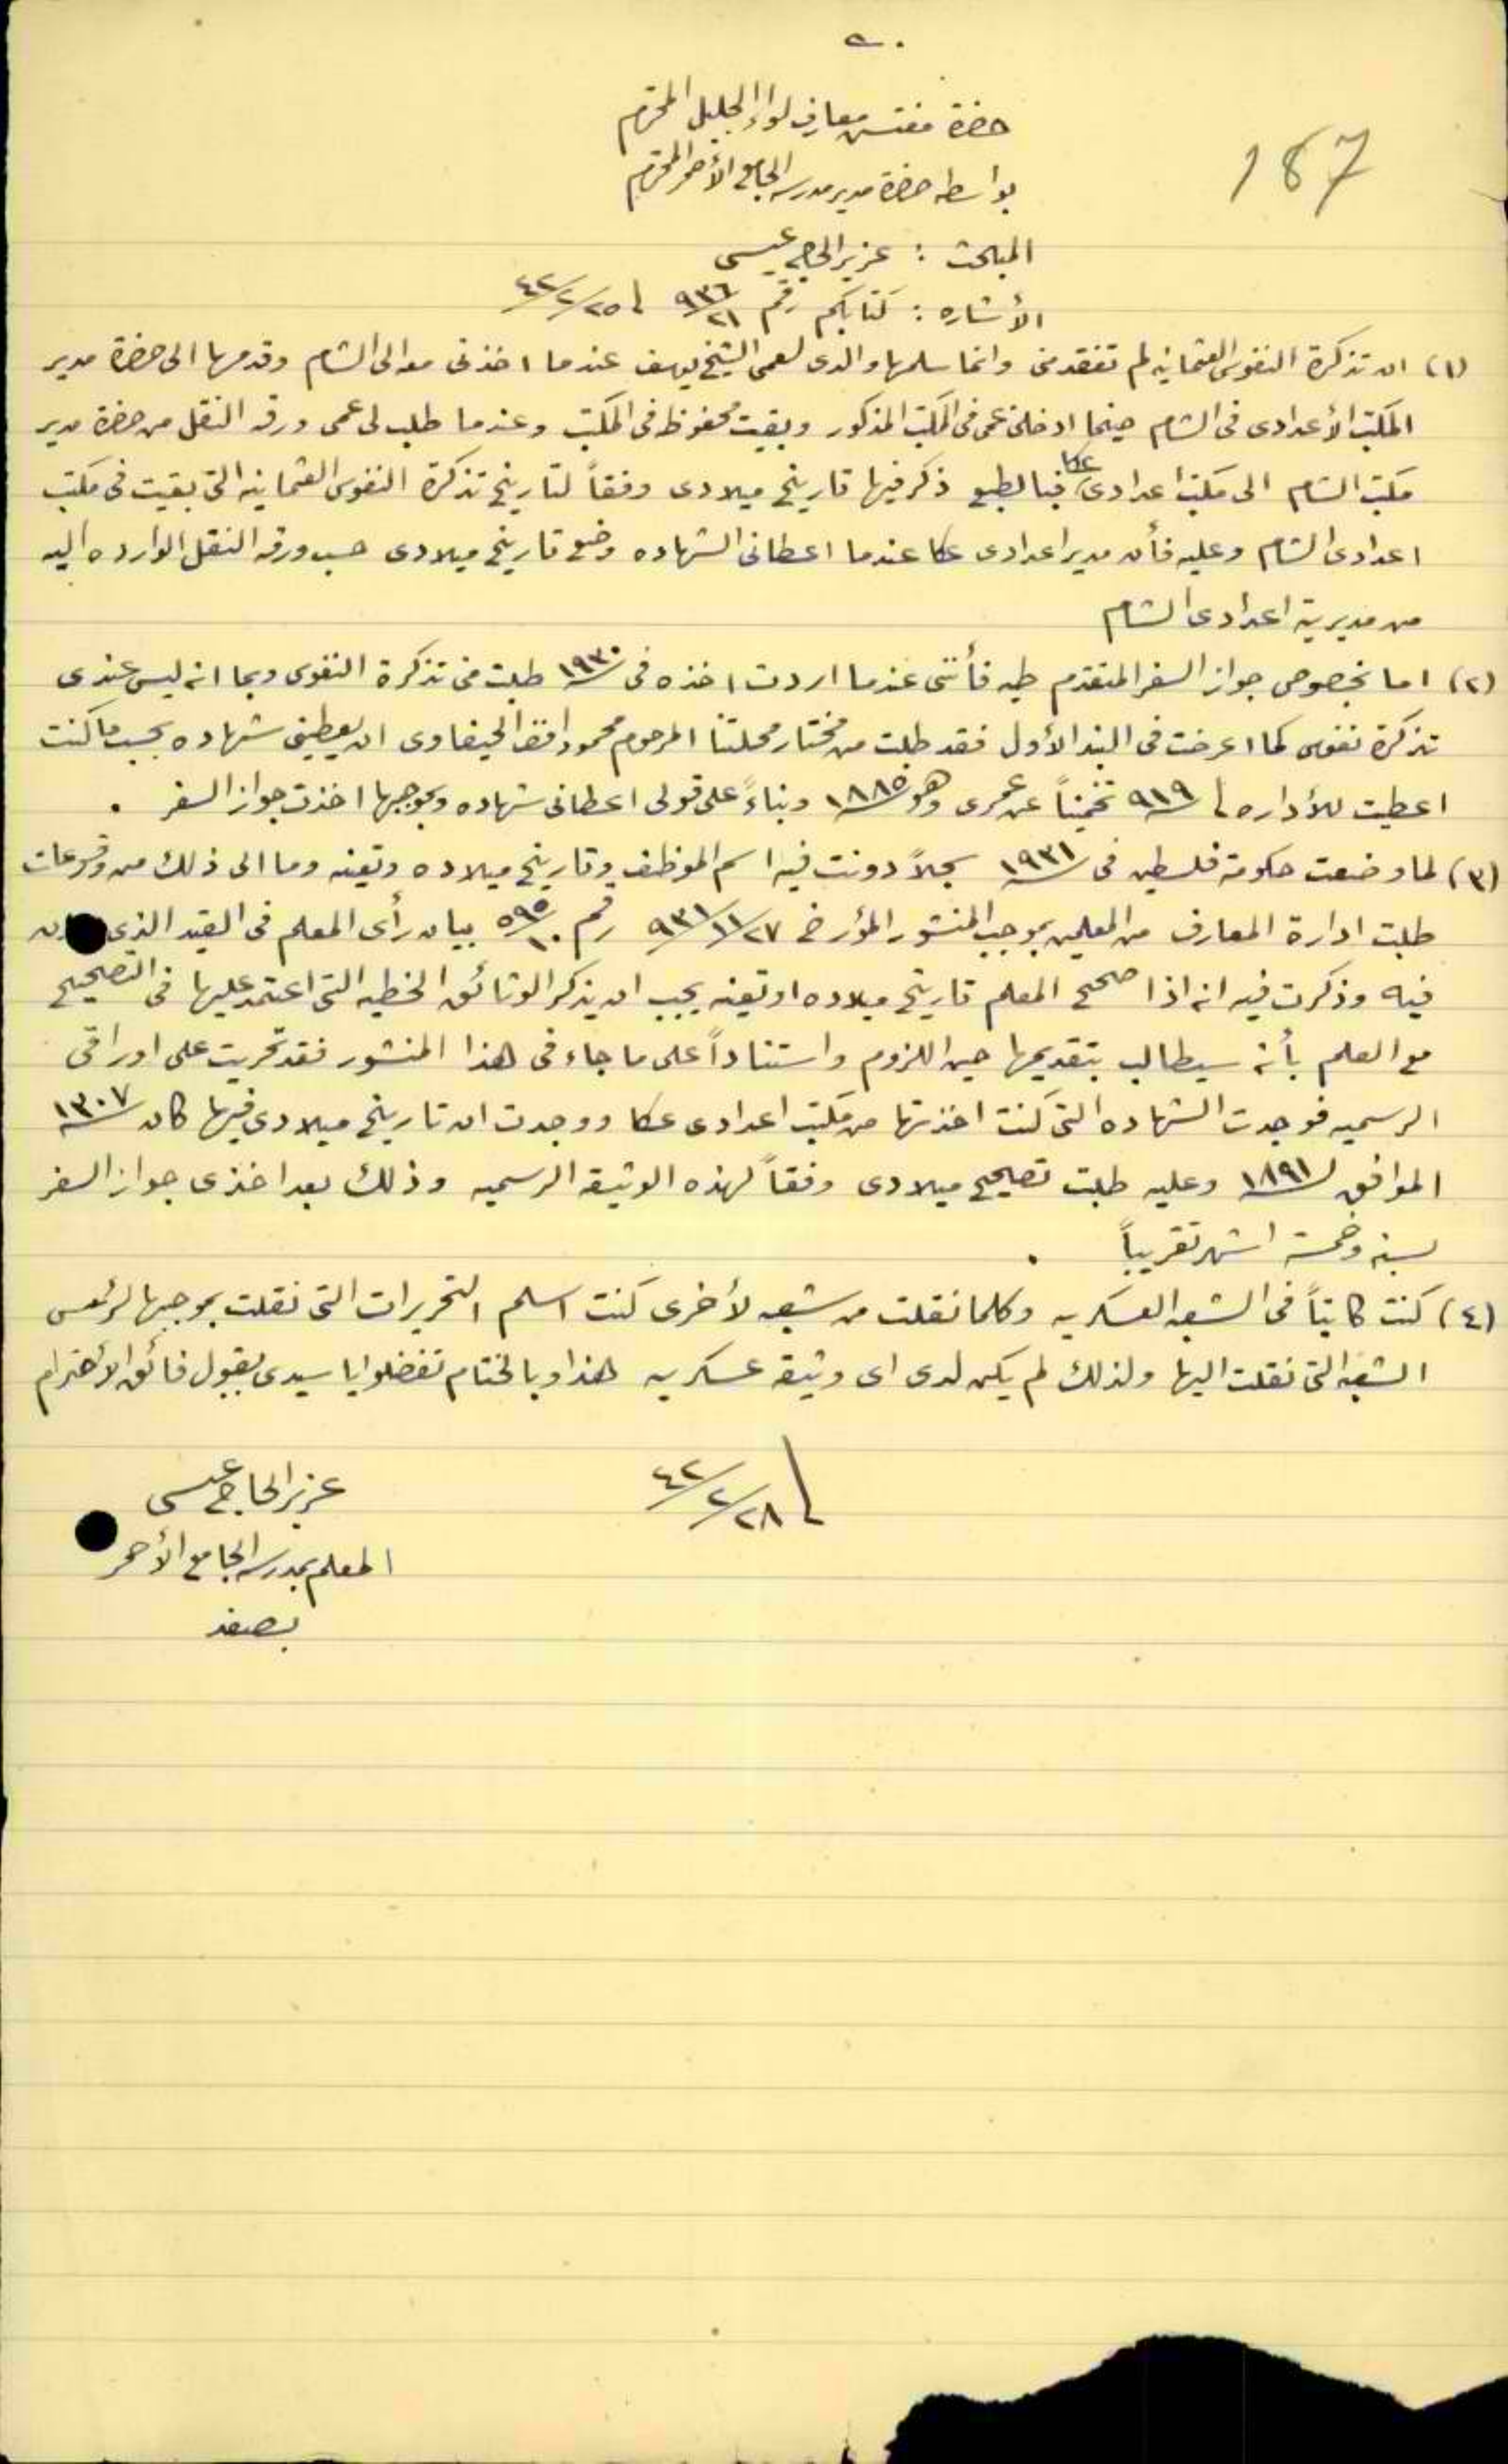 ٥٠
187
حضرة مفتش معارف لواء الجليل المحترم
بواسطه حضرة مدير مدرسه الجامع الأحمر المحترم
المبحث : عزيز الحاج عيسى
الأشاره : كتابكم رقم ٩٣٦/٢١ في ٢٥/٢/٤٢
(١) ان تذكرة النفوس العثمانيه لم تفقد مني وانما سلمها والدى لعمى الشيخ يوسف عندما اخذنى معه الى الشام وقدمها الى حضرة مدير
المكتب الأعدادى فى الشام حينما ادخلنى عمى فى المكتب المذكور وبقيت محفوظه فى المكتب وعندما طلب لى عمى ورقه النقل من حضرة مدير
مكتب الشام الى مكتب اعدادى عكا فبالطبع ذكر فيها تاريخ ميلادى وفقاً لتاريخ تذكرة النفوس العثمانيه التى بقيت فى مكتب
اعدادى الشام وعليه فأن مدير اعدادى عكا عندما اعطانى الشهاده وضع تاريخ ميلادى حسب ورقه النقل الوارده اليه
من مديرية اعدادى الشام
(٢) اما بخصوص جواز السفر المتقدم طيه فأننى عندما اردت اخذه فى ١٩٣٠ طلبت منى تذكرة النفوس وبما انه ليس عندى
تذكرة نفوس كما اعرضت فى البند الأول فقد طلبت من مختار محلتنا المرحوم محمود افندى الحيفاوى ان يعطينى شهاده بحسب ما كنت
اعطيت للأداره فى ٩١٩ تخميناً عن عمرى وهو ١٨٨٥ وبناءً على قولى اعطانى شهاده وبموجبها اخذت جواز السفر .
(٣) لما وضعت حكومة فلسطين فى ١٩٣١ سجلاً دونت فيه اسم الموظف وتاريخ ميلاده وتعينه وما الى ذلك من وقوعات
طلبت ادارة المعارف من المعلمين بموجب المنشور المؤرخ ٢٧/١١/٩٣١ رقم ٥٩٥/١٠ بيان رأى المعلم فى القيد الذى
فيه وذكرت فيه انه اذا صحح المعلم تاريخ ميلاده او تعينه يجب ان يذكر الوثائق الخطيه التى اعتمد عليها فى التصحيح
مع العلم بأنه سيطالب بتقديمها حين اللزوم واستناداً على ما جاء فى هذا المنشور فقد تحريت على اوراقى
الرسميه فوجدت الشهاده التى كنت اخذتها من مكتب اعدادى عكا ووجدت ان تاريخ ميلادى فيها كان ١٣٠٧
الموافق لـ ١٨٩١ وعليه طلبت تصحيح ميلادى وفقاً لهذه الوثيقه الرسميه وذلك بعد اخذى جواز السفر
بسنه وخمسة اشهر تقريباً .
(٤) كنت كاتباً فى الشعبه العسكريه وكلما نقلت من شعبه لأخرى كنت اسلم التحريرات التى نقلت بموجبها لرئيس
الشعبه التى نقلت اليها ولذلك لم يكن لدى اى وثيقه عسكريه هذا وبالختام تفضلوا يا سيدى بقبول فائق الأحترام
في ٢٨/٢/٤٢
عزيز الحاج عيسى
المعلم بمدرسه الجامع الأحمر
بصفد